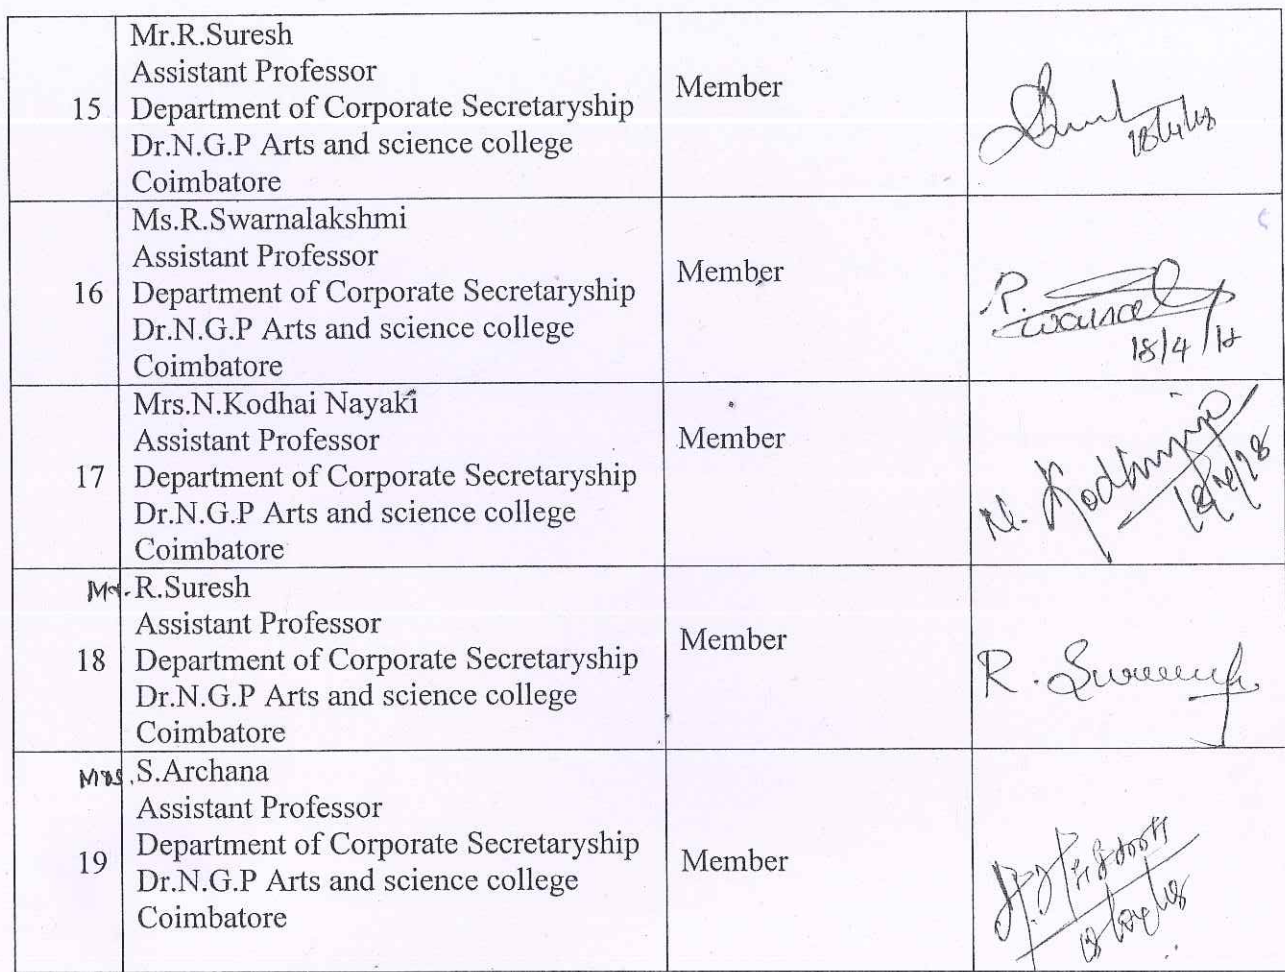 Mr.R.Suresh
Assistant Professor
15 Department of Corporate Secretaryship
Dr.N.G.P Arts and science college
Coimbatore
Member
18/4/18
Ms.R.Swarnalakshmi
Assistant Professor
16 Department of Corporate Secretaryship
Dr.N.G.P Arts and science college
Coimbatore
Member
R.
18/4/18
Mrs.N.Kodhai Nayaki
Assistant Professor
17 Department of Corporate Secretaryship
Dr.N.G.P Arts and science college
Coimbatore
Member
N. Kodhai
18/4/18
Mr. R.Suresh
Assistant Professor
18 Department of Corporate Secretaryship
Dr.N.G.P Arts and science college
Coimbatore
Member
R. Suresh
Mrs. S.Archana
Assistant Professor
19 Department of Corporate Secretaryship
Dr.N.G.P Arts and science college
Coimbatore
Member